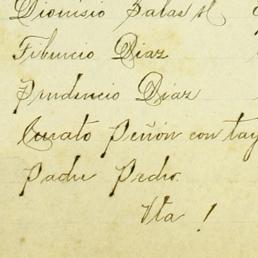 Dionisio Salas M
Tiburcio Diaz
Prudencio Diaz
Curato Peñón con tay
Padre Pedro.
Vta !